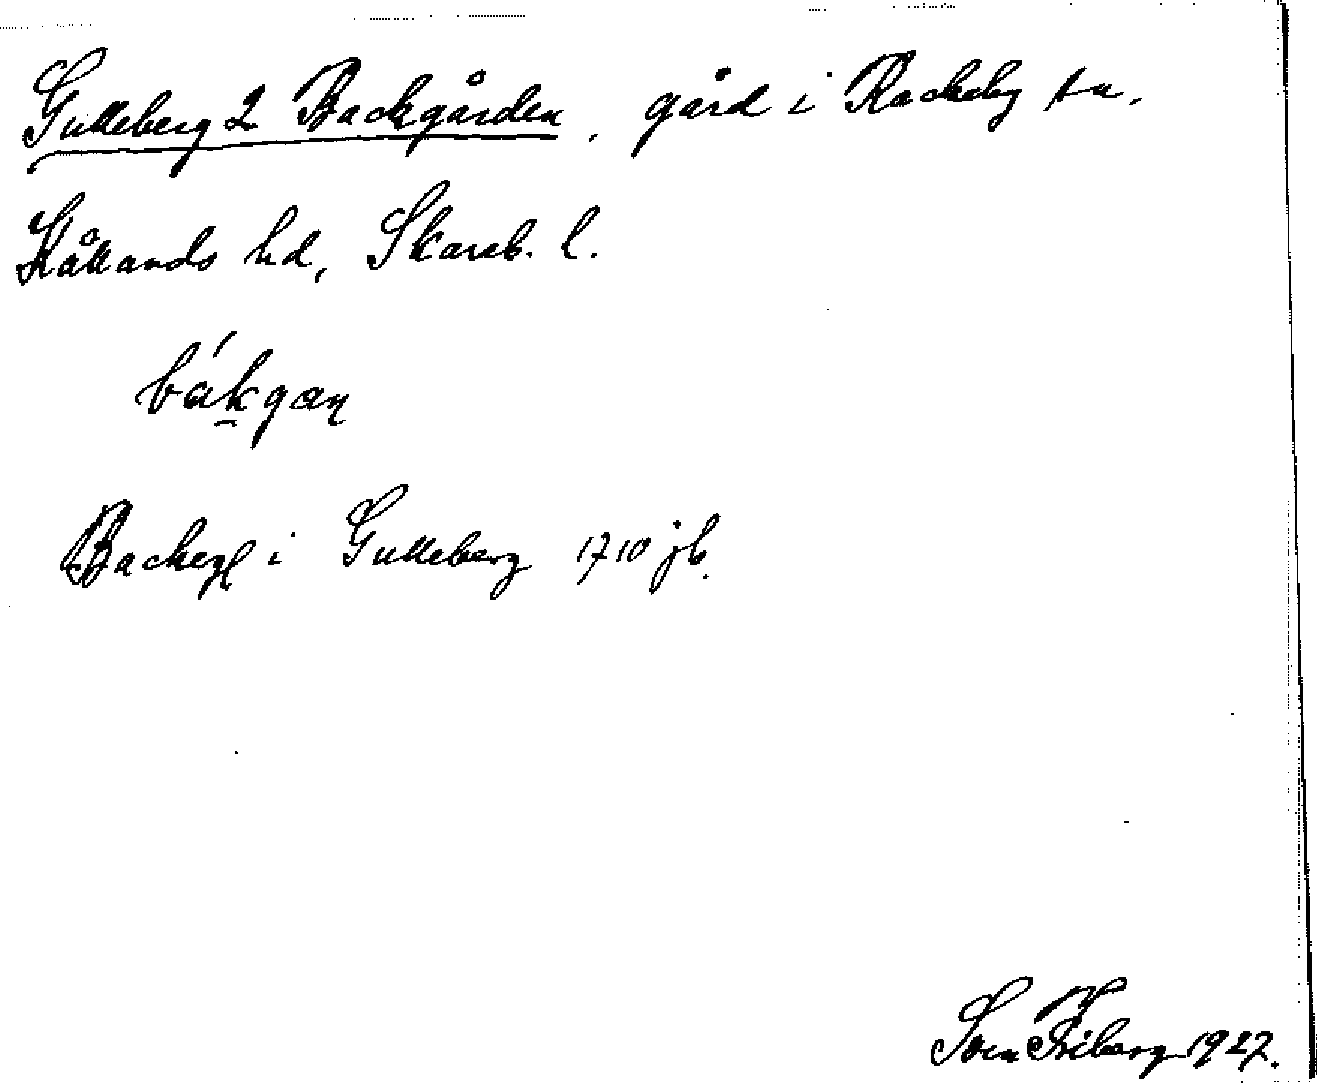 Gulleberg 2 Backgården, gård i Rackeby sn.
Kållands hd, Skarab. l.
bák̲gaṇ
Backegl i Gulleberg 1710 jb.
Sven Friberg 1927.